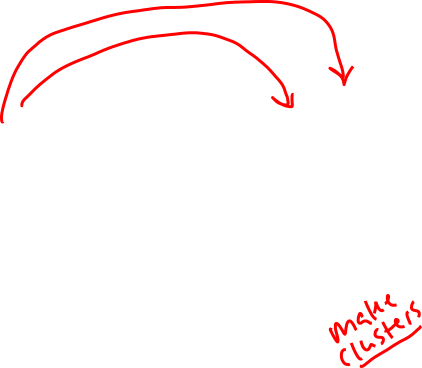 make
clusters